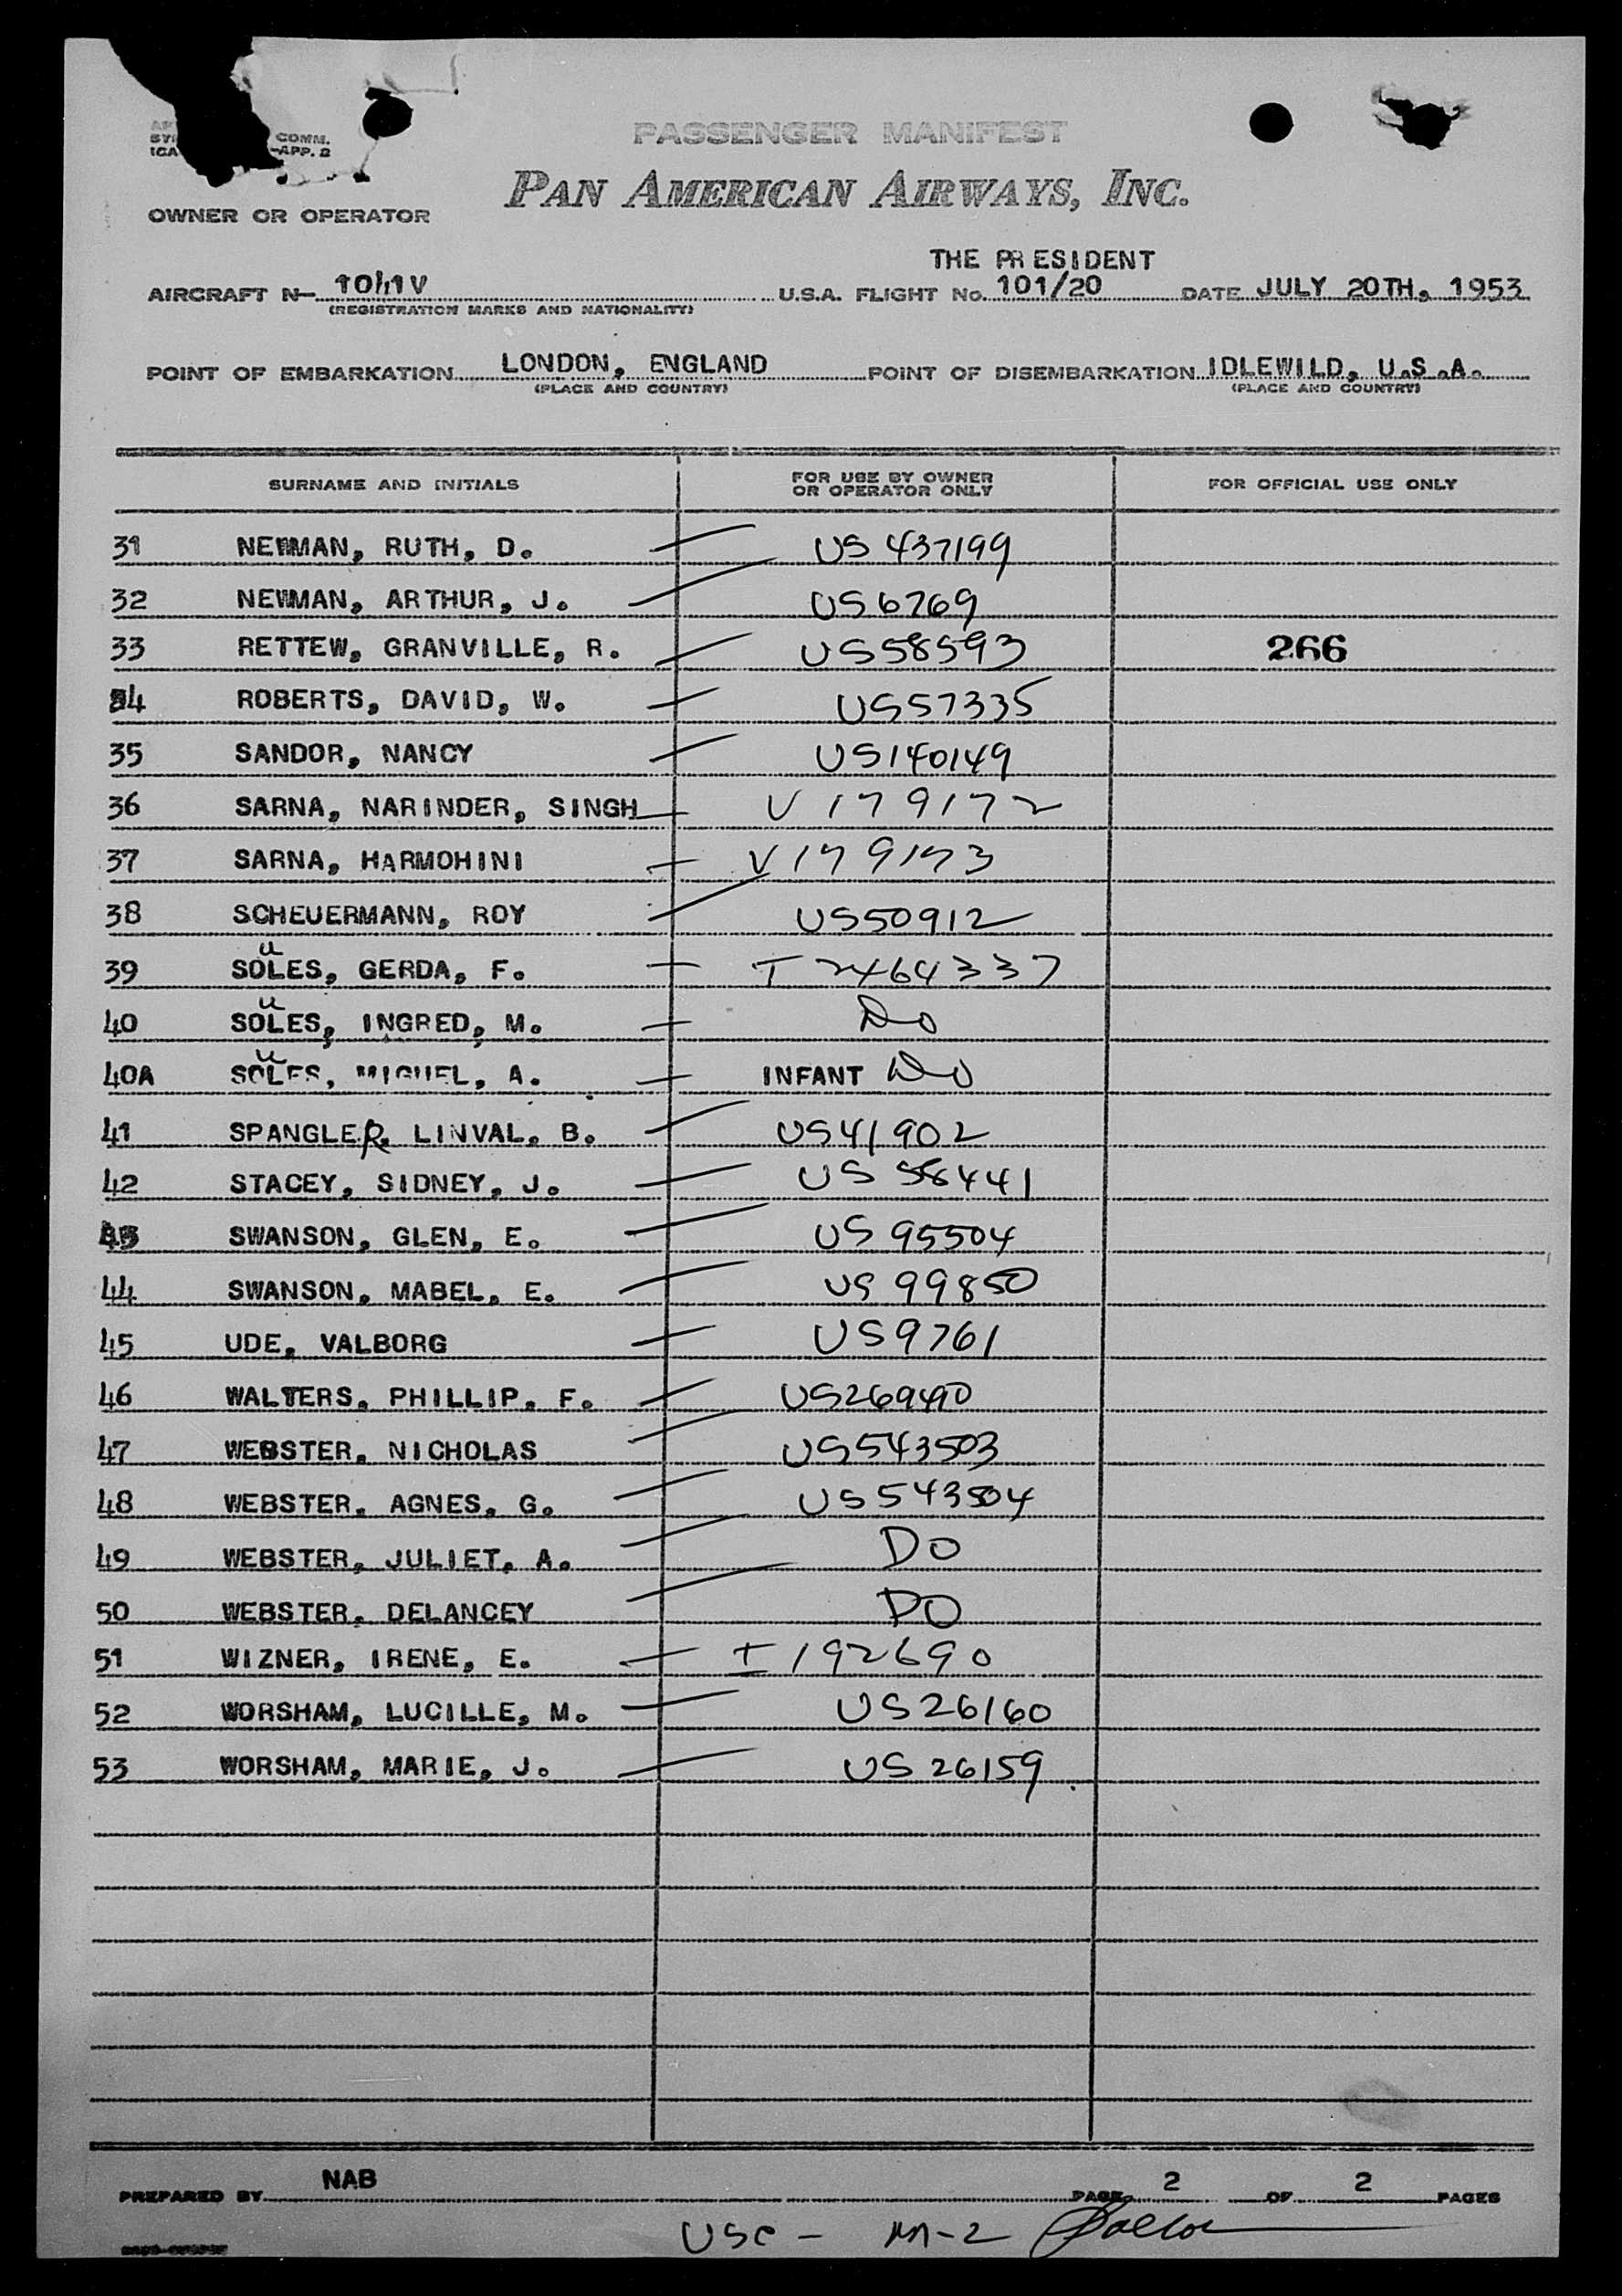 COMM.
-APP. 2
PASSENGER MANIFEST
PAN AMERICAN AIRWAYS, INC.
OWNER OR OPERATOR
THE PRESIDENT
AIRCRAFT N- 1041V U.S.A. FLIGHT No. 101/20 DATE JULY 20TH, 1953
(REGISTRATION MARKS AND NATIONALITY)
POINT OF EMBARKATION LONDON, ENGLAND POINT OF DISEMBARKATION IDLEWILD, U.S.A.
(PLACE AND COUNTRY) (PLACE AND COUNTRY)
SURNAME AND INITIALS FOR USE BY OWNER OR OPERATOR ONLY FOR OFFICIAL USE ONLY
31 NEWMAN, RUTH, D. US 437199
32 NEWMAN, ARTHUR, J. US6769
33 RETTEW, GRANVILLE, R. US58593 266
34 ROBERTS, DAVID, W. US57335
35 SANDOR, NANCY US140149
36 SARNA, NARINDER, SINGH V 179172
37 SARNA, HARMOHINI V179173
38 SCHEUERMANN, ROY US50912
u
39 SOLES, GERDA, F. T 2464337
u
40 SOLES, INGRED, M. Do
u
40A SOLES, MIGUEL, A. INFANT Do
41 SPANGLER, LINVAL, B. US41902
42 STACEY, SIDNEY, J. US 58441
43 SWANSON, GLEN, E. US 95504
44 SWANSON, MABEL, E. US 99850
45 UDE, VALBORG US9761
46 WALTERS, PHILLIP, F. US269490
47 WEBSTER, NICHOLAS US543503
48 WEBSTER, AGNES, G. US543504
49 WEBSTER, JULIET, A. DO
50 WEBSTER, DELANCEY DO
51 WIZNER, IRENE, E. I 192690
52 WORSHAM, LUCILLE, M. US26160
53 WORSHAM, MARIE, J. US 26159
PREPARED BY NAB PAGE 2 OF 2 PAGES
USC - M-2